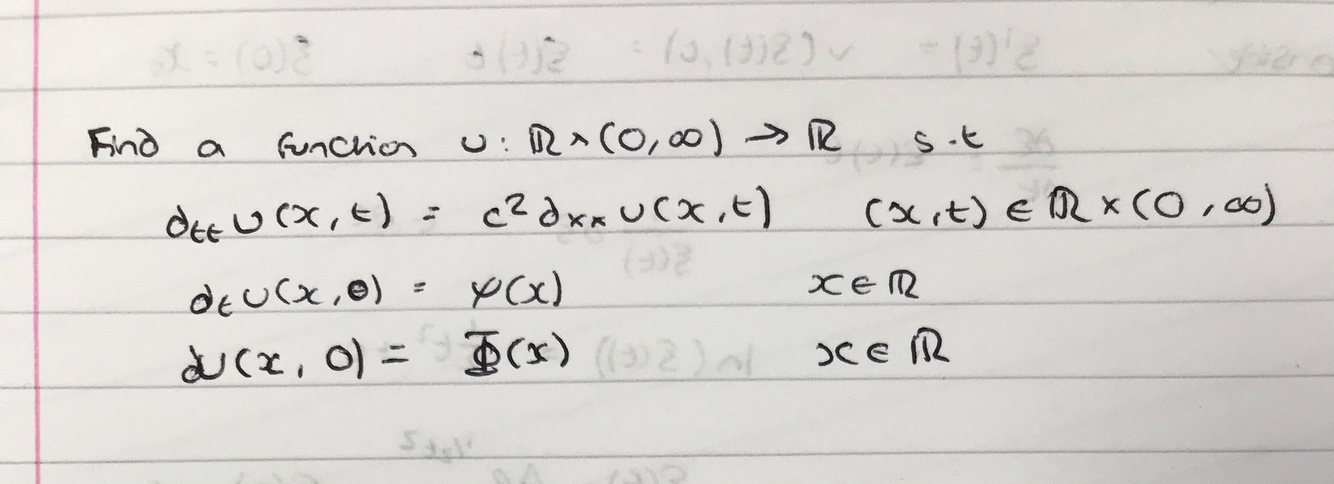 Find a function u: ℝ × (0, ∞) → ℝ s.t
∂ₜₜ u(x, t) = c² ∂ₓₓ u(x, t) (x, t) ∈ ℝ × (0, ∞)
∂ₜ u(x, 0) = ψ(x) x ∈ ℝ
∂u(x, 0) = Φ(x) x ∈ ℝ